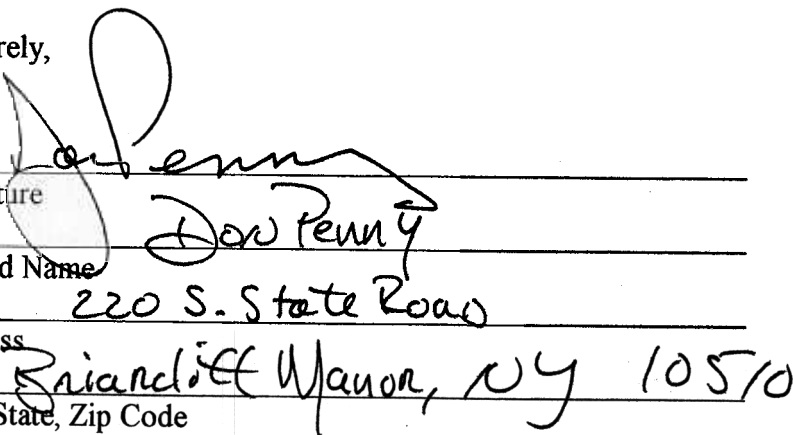 rely,
Don Penny
ture
Don Penny
d Name
220 S. State Road
ss
Briarcliff Manor, NY 10510
State, Zip Code